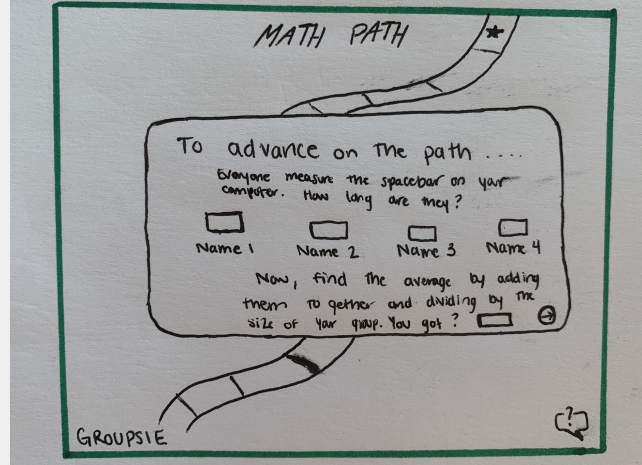 MATH PATH
To advance on the path ....
Everyone measure the spacebar on your
computer. How long are they?
Name 1 Name 2 Name 3 Name 4
Now, find the average by adding
them to gether and dividing by the
size of your group. You got?
GROUPSIE
?